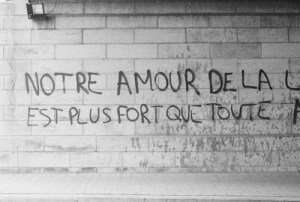 NOTRE AMOUR DE LA L
EST PLUS FORT QUE TOUTE A